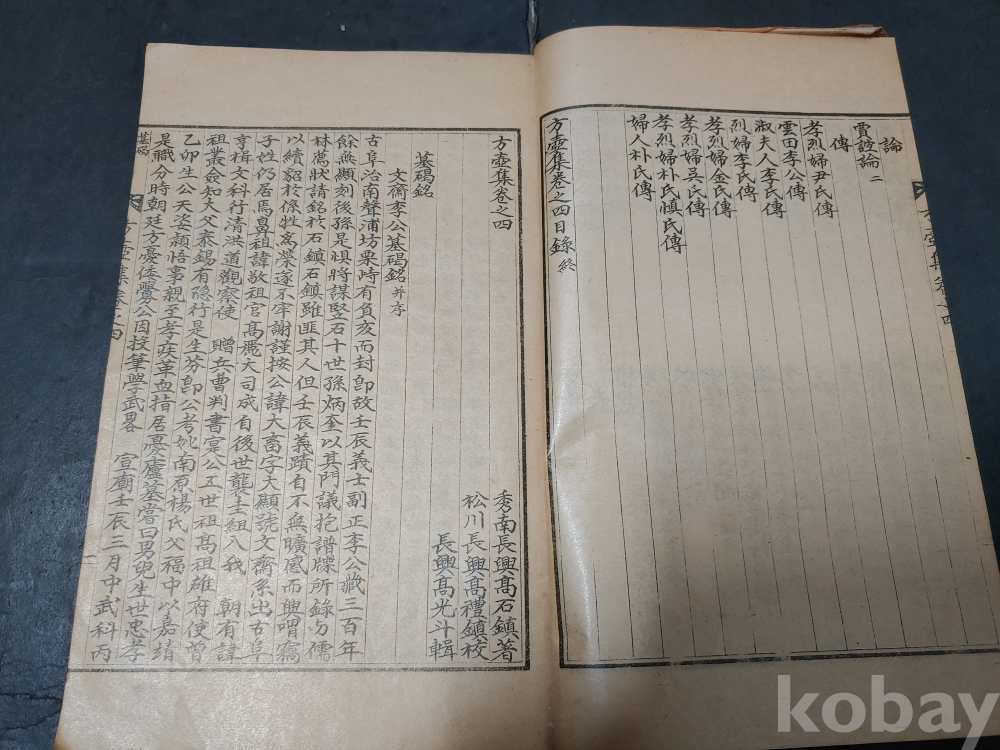 論
賈誼論二
傳
孝烈婦尹氏傳
雲田李公傳
淑夫人李氏傳
烈婦李氏傳
孝烈婦金氏傳
孝烈婦吳氏傳
孝烈婦朴氏愼氏傳
婦人朴氏傳
方壺集卷之四目錄終
方壺集卷之四
方壺集卷之四
秀南長興高石鎭著
松川長興高禮鎭校
長興高光斗輯
墓碣銘
文齋李公墓碣銘并序
古阜治南聲浦坊栗峙有負亥而封卽故壬辰義士副正李公藏三百年
餘無顯刻後孫是惧將謀竪石十世孫炳奎以其門議抱譜牒所錄与儒
林薦狀請銘於石鎭石鎭雖匪其人但壬辰義蹟自不無曠感而興喟竊
以續貂於條牲為榮遂不牢謝謹按公諱大畜字大顯號文齋系出古阜
子姓仍居焉鼻祖諱敬祖官高麗大司成自後世襲圭組入我 朝有諱
亨楫文科行清洪道觀察使 贈兵曹判書寔公五世祖高祖雄府使曾
祖叢僉知大父泰錫有隱行是生芬卽公考妣南原楊氏父福中以嘉靖
乙卯生公天姿穎悟事親至孝疾革血指居憂廬墓嘗曰男兒生世忠孝
是職分時朝廷方憂倭釁公因投筆學武畧 宣廟壬辰三月中武科丙
墓碣
方壺集卷之四
一
kobay